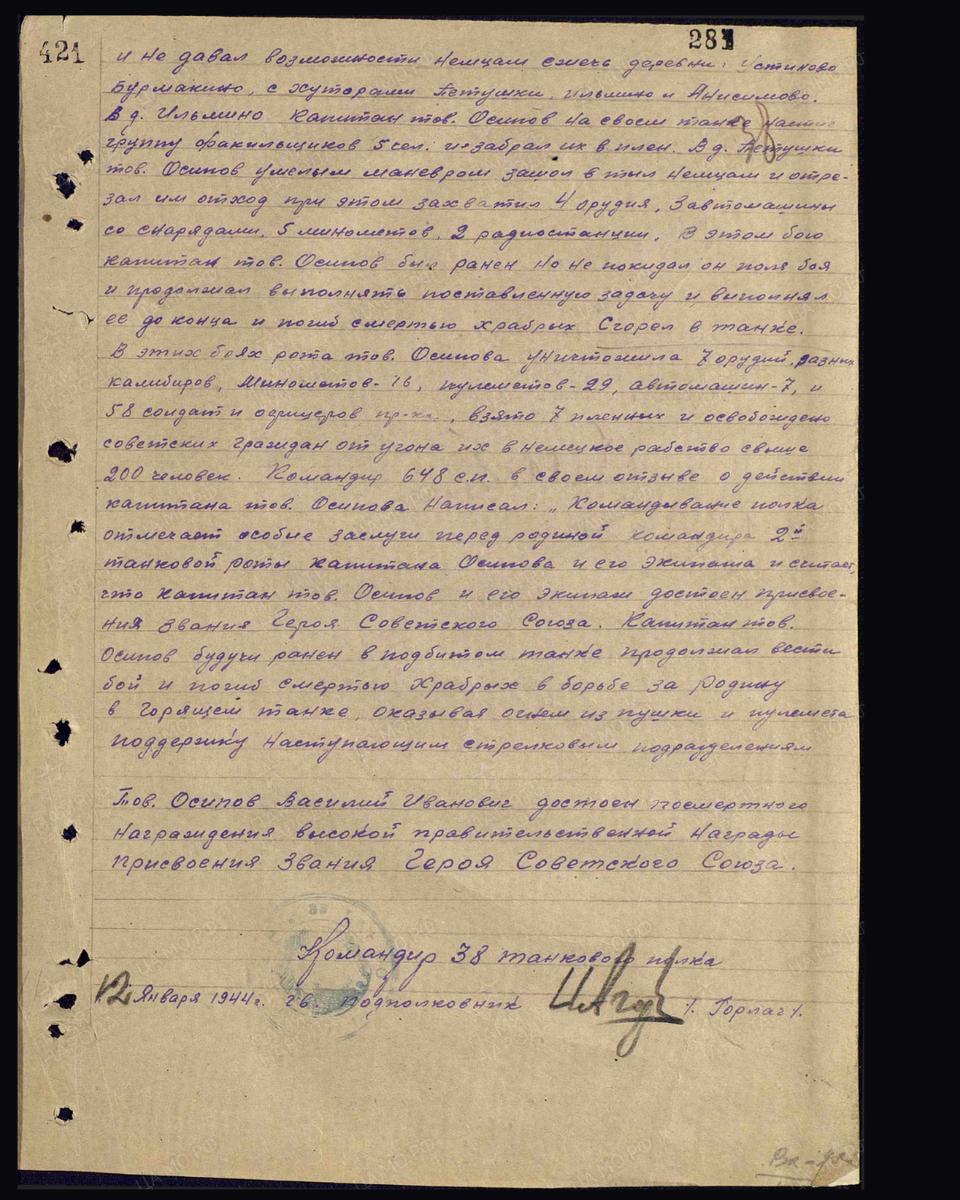 421
281
и не давал возможности немцам сжечь деревни: Устиново
Бурмакино, с хуторами Петушки, Ильино и Анисимово.
В д. Ильмино капитан тов. Осипов на своем танке настиг
группу факильщиков 5 чел. и забрал их в плен. В д. Петушки
тов. Осипов умелым маневром зашол в тыл немцам и отре-
зал им отход при этом захватил 4 орудия, 3 автомашины
со снарядами, 5 минометов, 2 радиостанции. В этом бою
капитан тов. Осипов был ранен но не покидал он поля боя
и продолжал выполнять поставленную задачу и выполнял
ее до конца и погиб смертью храбрых Сгорел в танке.
В этих боях рота тов. Осипова уничтожила 7 орудий, разных
калибиров, Минометов-16, пулеметов-29, автомашин-7, и
58 солдат и офицеров пр-ка, взято 7 пленных и освобождено
советских граждан от угона их в немецкое рабство свыше
200 человек. Командир 648 с.п. в своем отзыве о действии
капитана тов. Осипова Написал: „Командывание полка
отмечает особые заслуги перед родиной командира 2й
танковой роты капитана Осипова и его экипажа и считает,
что капитан тов. Осипов и его экипаж достоен присвое-
ния звания Героя Советского Союза. Капитан тов.
Осипов будучи ранен в подбитом танке продолжал вести
бой и погиб смертью храбрых в борьбе за Родину
в горящем танке, оказывая огнем из пушки и пулемета
поддержку наступающим стрелковым подразделениям
Тов. Осипов Василий Иванович достоен посмертного
награждения высокой правительственной награды
присвоения звания Героя Советского Союза.
Командир 38 танкового полка
12 Января 1944 г. Гв. подполковник /. Горлач /.